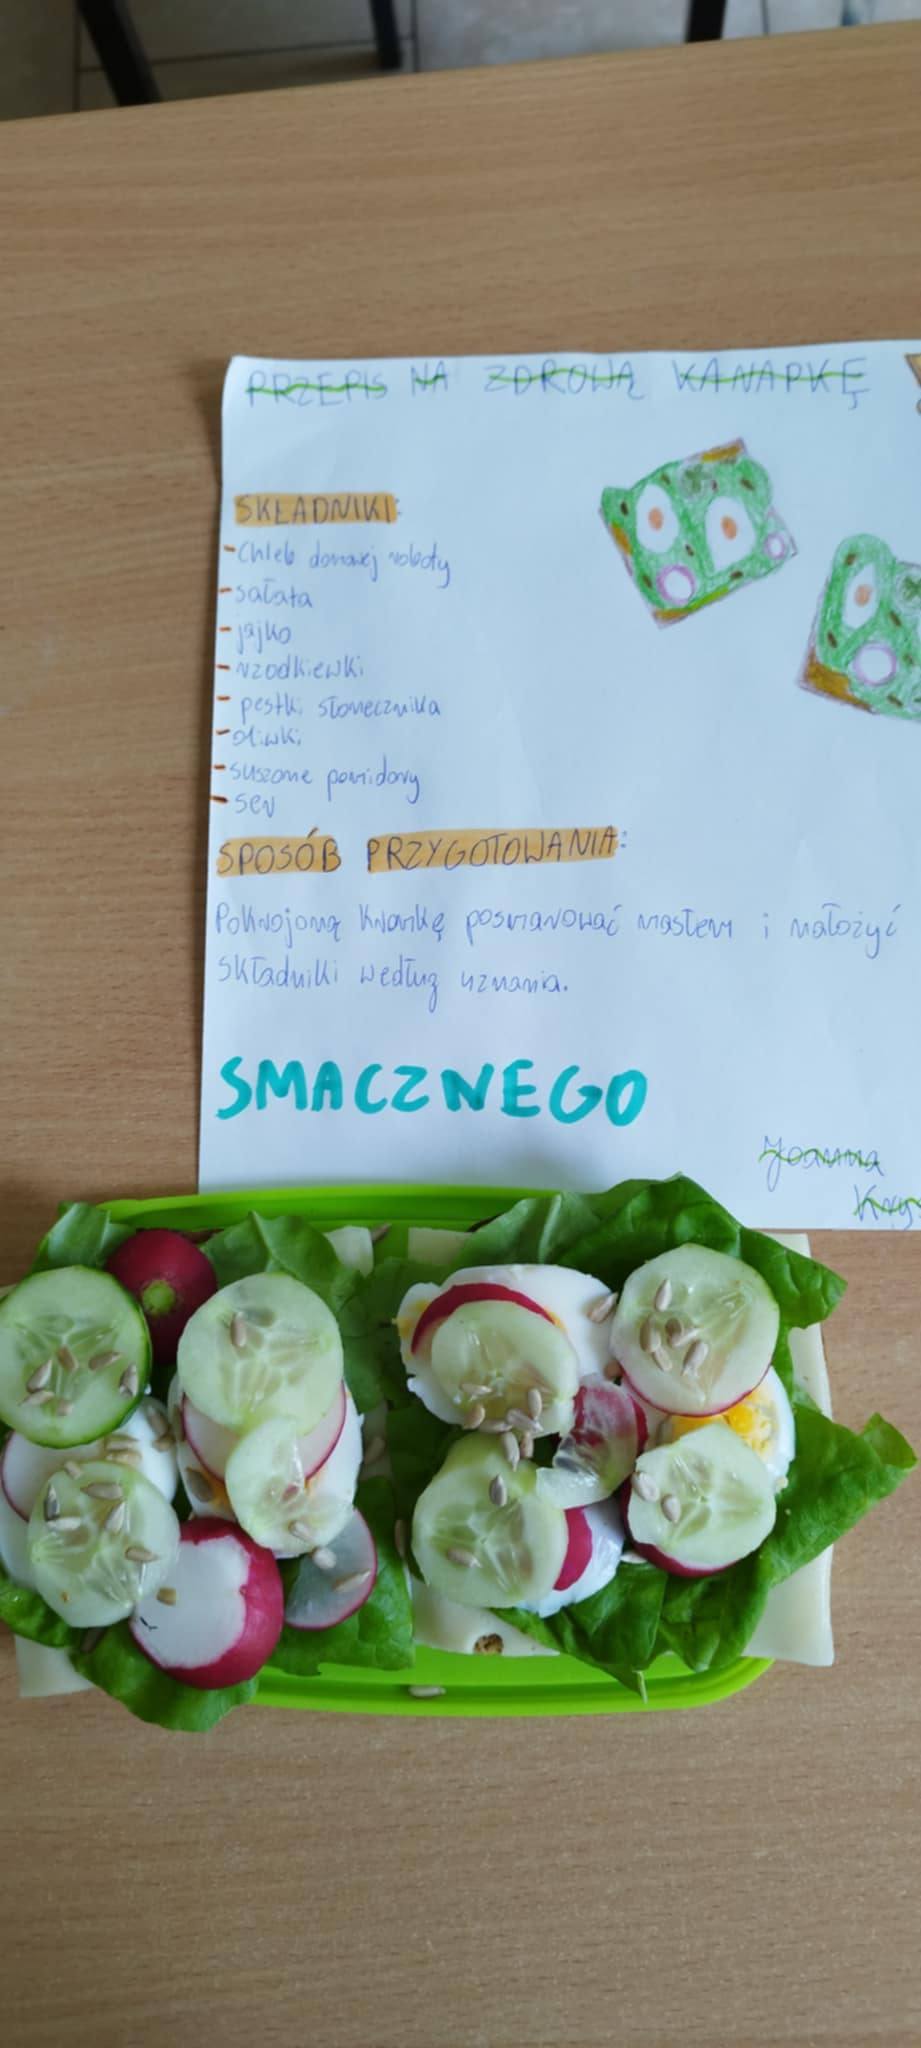 PRZEPIS NA ZDROWĄ KANAPKĘ
SKŁADNIKI:
-Chleb domowej roboty
-sałata
-jajko
-rzodkiewki
-pestki słonecznika
-oliwki
-suszone pomidory
-ser
SPOSÓB PRZYGOTOWANIA:
Pokrojoną kromkę posmarować masłem i nałożyć
składniki według uznania.
SMACZNEGO
Joanna